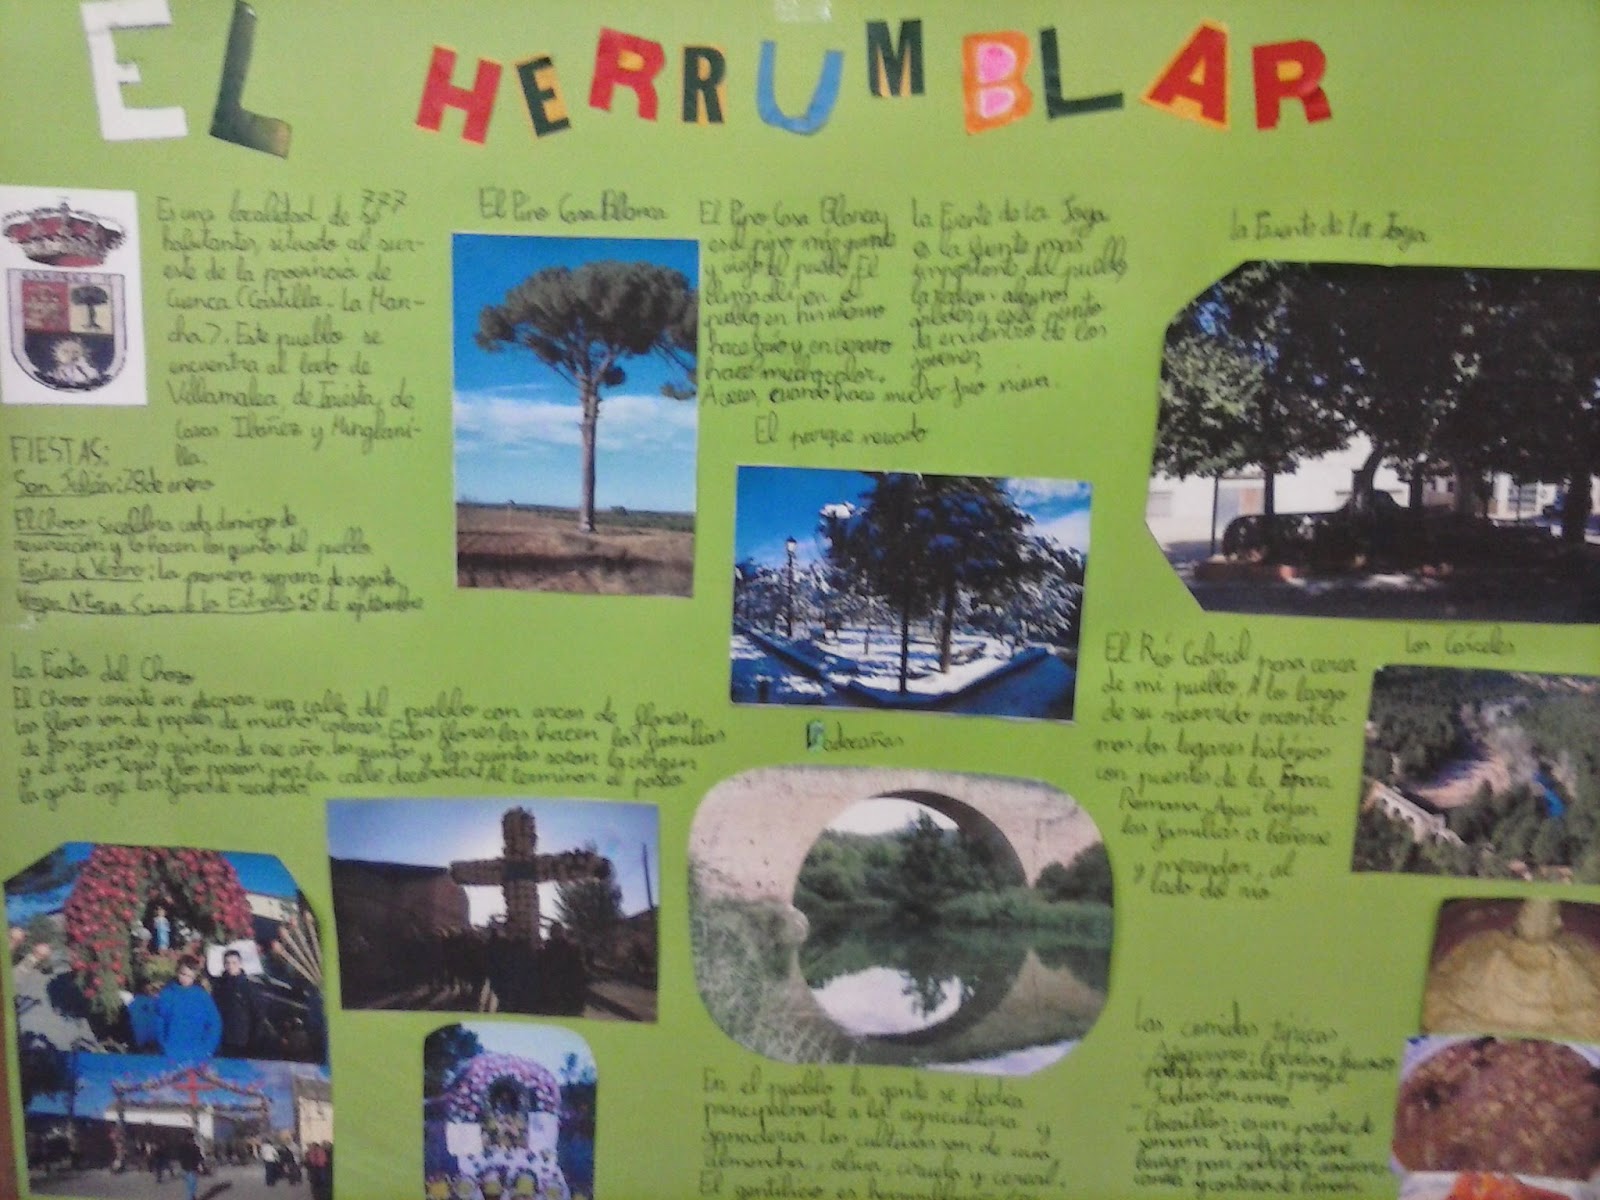 EL HERRUMBLAR
Es una localidad de 777
habitantes, situado al sur-
este de la provincia de
Cuenca (Castilla-La Man-
cha). Este pueblo se
encuentra al lado de
Villamalea, de Iniesta, de
Casas Ibáñez y Minglani-
lla.
FIESTAS:
San Julián: 28 de enero
El Chozo: Se celebra cada domingo de
resurrección y lo hacen los quintos del pueblo
Fiestas de Verano: La primera semana de agosto
Virgen Ntra Sra de la Estrella: 8 de septiembre
La Fiesta del Chozo
El Chozo consiste en decorar una calle del pueblo con arcos de flores,
las flores son de papeles de muchos colores. Estas flores las hacen las familias
de los quintos y quintas de ese año. Los quintos y las quintas sacan la virgen
y el niño Jesús y los pasean por la calle decorada. Al terminar el paseo
la gente coge las flores de recuerdo.
El Pino Casa Blanca
El Pino Casa Blanca,
es el pino más grande
y viejo del pueblo. El
clima del
pueblo en invierno
hace frío y en verano
hace mucho calor.
A veces, cuando hace mucho frío nieva.
El parque nevado
La Fuente de La Joya
es la fuente más
importante del pueblo
la rodean algunos
árboles y es el punto
de encuentro de los
jóvenes
La Fuente de La Joya
El Río Cabriel pasa cerca
de mi pueblo. A lo largo
de su recorrido encontra-
mos dos lugares históricos
con puentes de la Época
Romana. Aquí bajan
las familias a bañarse
y merendar, al
lado del río.
Los Cárceles
Vadocañas
En el pueblo la gente se dedica
principalmente a la agricultura y
ganadería. Los cultivos son de viña,
almendra, oliva, ciruela y cereal.
El gentilicio es
Las comidas típicas
- Judías con arroz.
es un postre de
semana Santa que tiene